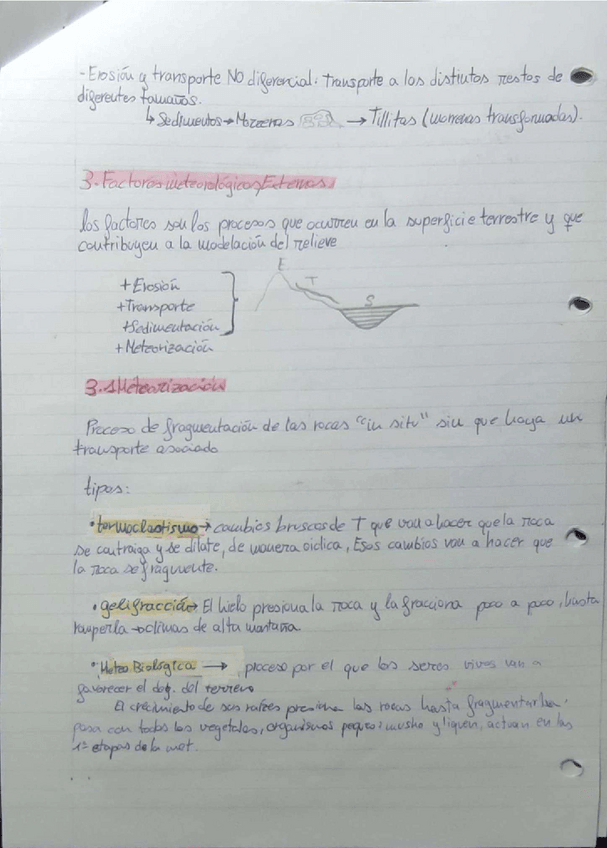 - Erosión y transporte NO diferencial: transporte a los distintos restos de
diferentes tamaños.
↳ Sedimentos → Morrenas → Tillitas (morrenas transformadas).
3. Factores meteorológicos Externos
los factores son los procesos que ocurren en la superficie terrestre y que
contribuyen a la modelación del relieve
E
T
S
+ Erosión
+ Transporte
+ Sedimentación
+ Meteorización
3.1 Meteorización
Proceso de fragmentación de las rocas "in situ" sin que haya un
transporte asociado
tipos:
• termoclastismo → cambios bruscos de T que van a hacer que la roca
se contraiga y se dilate, de manera cíclica, Esos cambios van a hacer que
la roca se fragmente.
• gelifracción → El hielo presiona la roca y la fracciona poco a poco, hasta
romperla → climas de alta montaña
• Meteo Biológica → proceso por el que los seres vivos van a
favorecer el del terreno
El crecimiento de sus raíces presiona las rocas hasta fragmentarlas.
pasa con todos los vegetales, organismos y liquen, actúan en las
1ª etapas de la met.